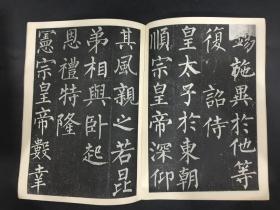 錫施異於他等
復 詔侍
皇太子於東朝
順宗皇帝深仰
其風親之若昆
弟相與卧起
恩禮特隆
憲宗皇帝數幸